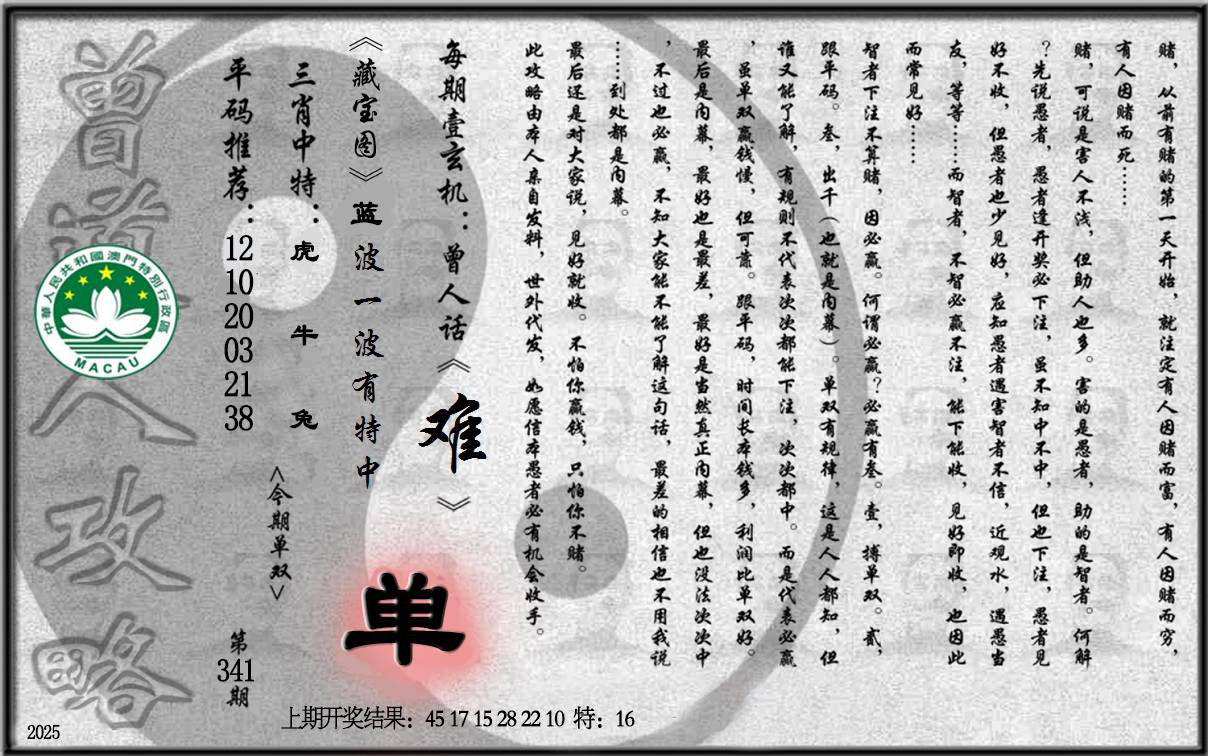 赌，从前有赌的第一天开始，就注定有人因赌而富，有人因赌而穷，
有人因赌而死……
赌，可说是害人不浅，但助人也多。害的是愚者，助的是智者。何解
？先说愚者，愚者逢开奖必下注，虽不知中不中，但也下注，愚者见
好不收，但愚者也少见好，应知愚者遇害智者不信，近观水，遇愚当
友，等等……而智者，不智必赢不注，能下能收，见好即收，也因此
而常见好……
智者下注不算赌，因必赢。何谓必赢？必赢有叁。壹，搏单双。贰，
跟平码。叁，出千（也就是内幕）。单双有规律，这是人人都知，但
谁又能了解，有规则不代表次次都能下注，次次都中。而是代表必赢
，虽单双赢钱慢，但可靠。跟平码，时间长本钱多，利润比单双好。
最后是内幕，最好也是最差，最好是当然真正内幕，但也没法次次中
，不过也必赢，不知大家能不能了解这句话，最差的相信也不用我说
……到处都是内幕。
最后还是对大家说，见好就收。不怕你赢钱，只怕你不赌。
此攻略由本人亲自发料，世外代发，如愿信本愚者必有机会收手。
每期壹玄机：曾人话《难》
《藏宝图》蓝波一波有特中
单
三肖中特：虎 牛 兔
<今期单双>
平码推荐：12 10 20 03 21 38
第341期
曾道人攻略
中華人民共和國澳門特別行政區
MACAU
上期开奖结果：45 17 15 28 22 10 特：16
2025